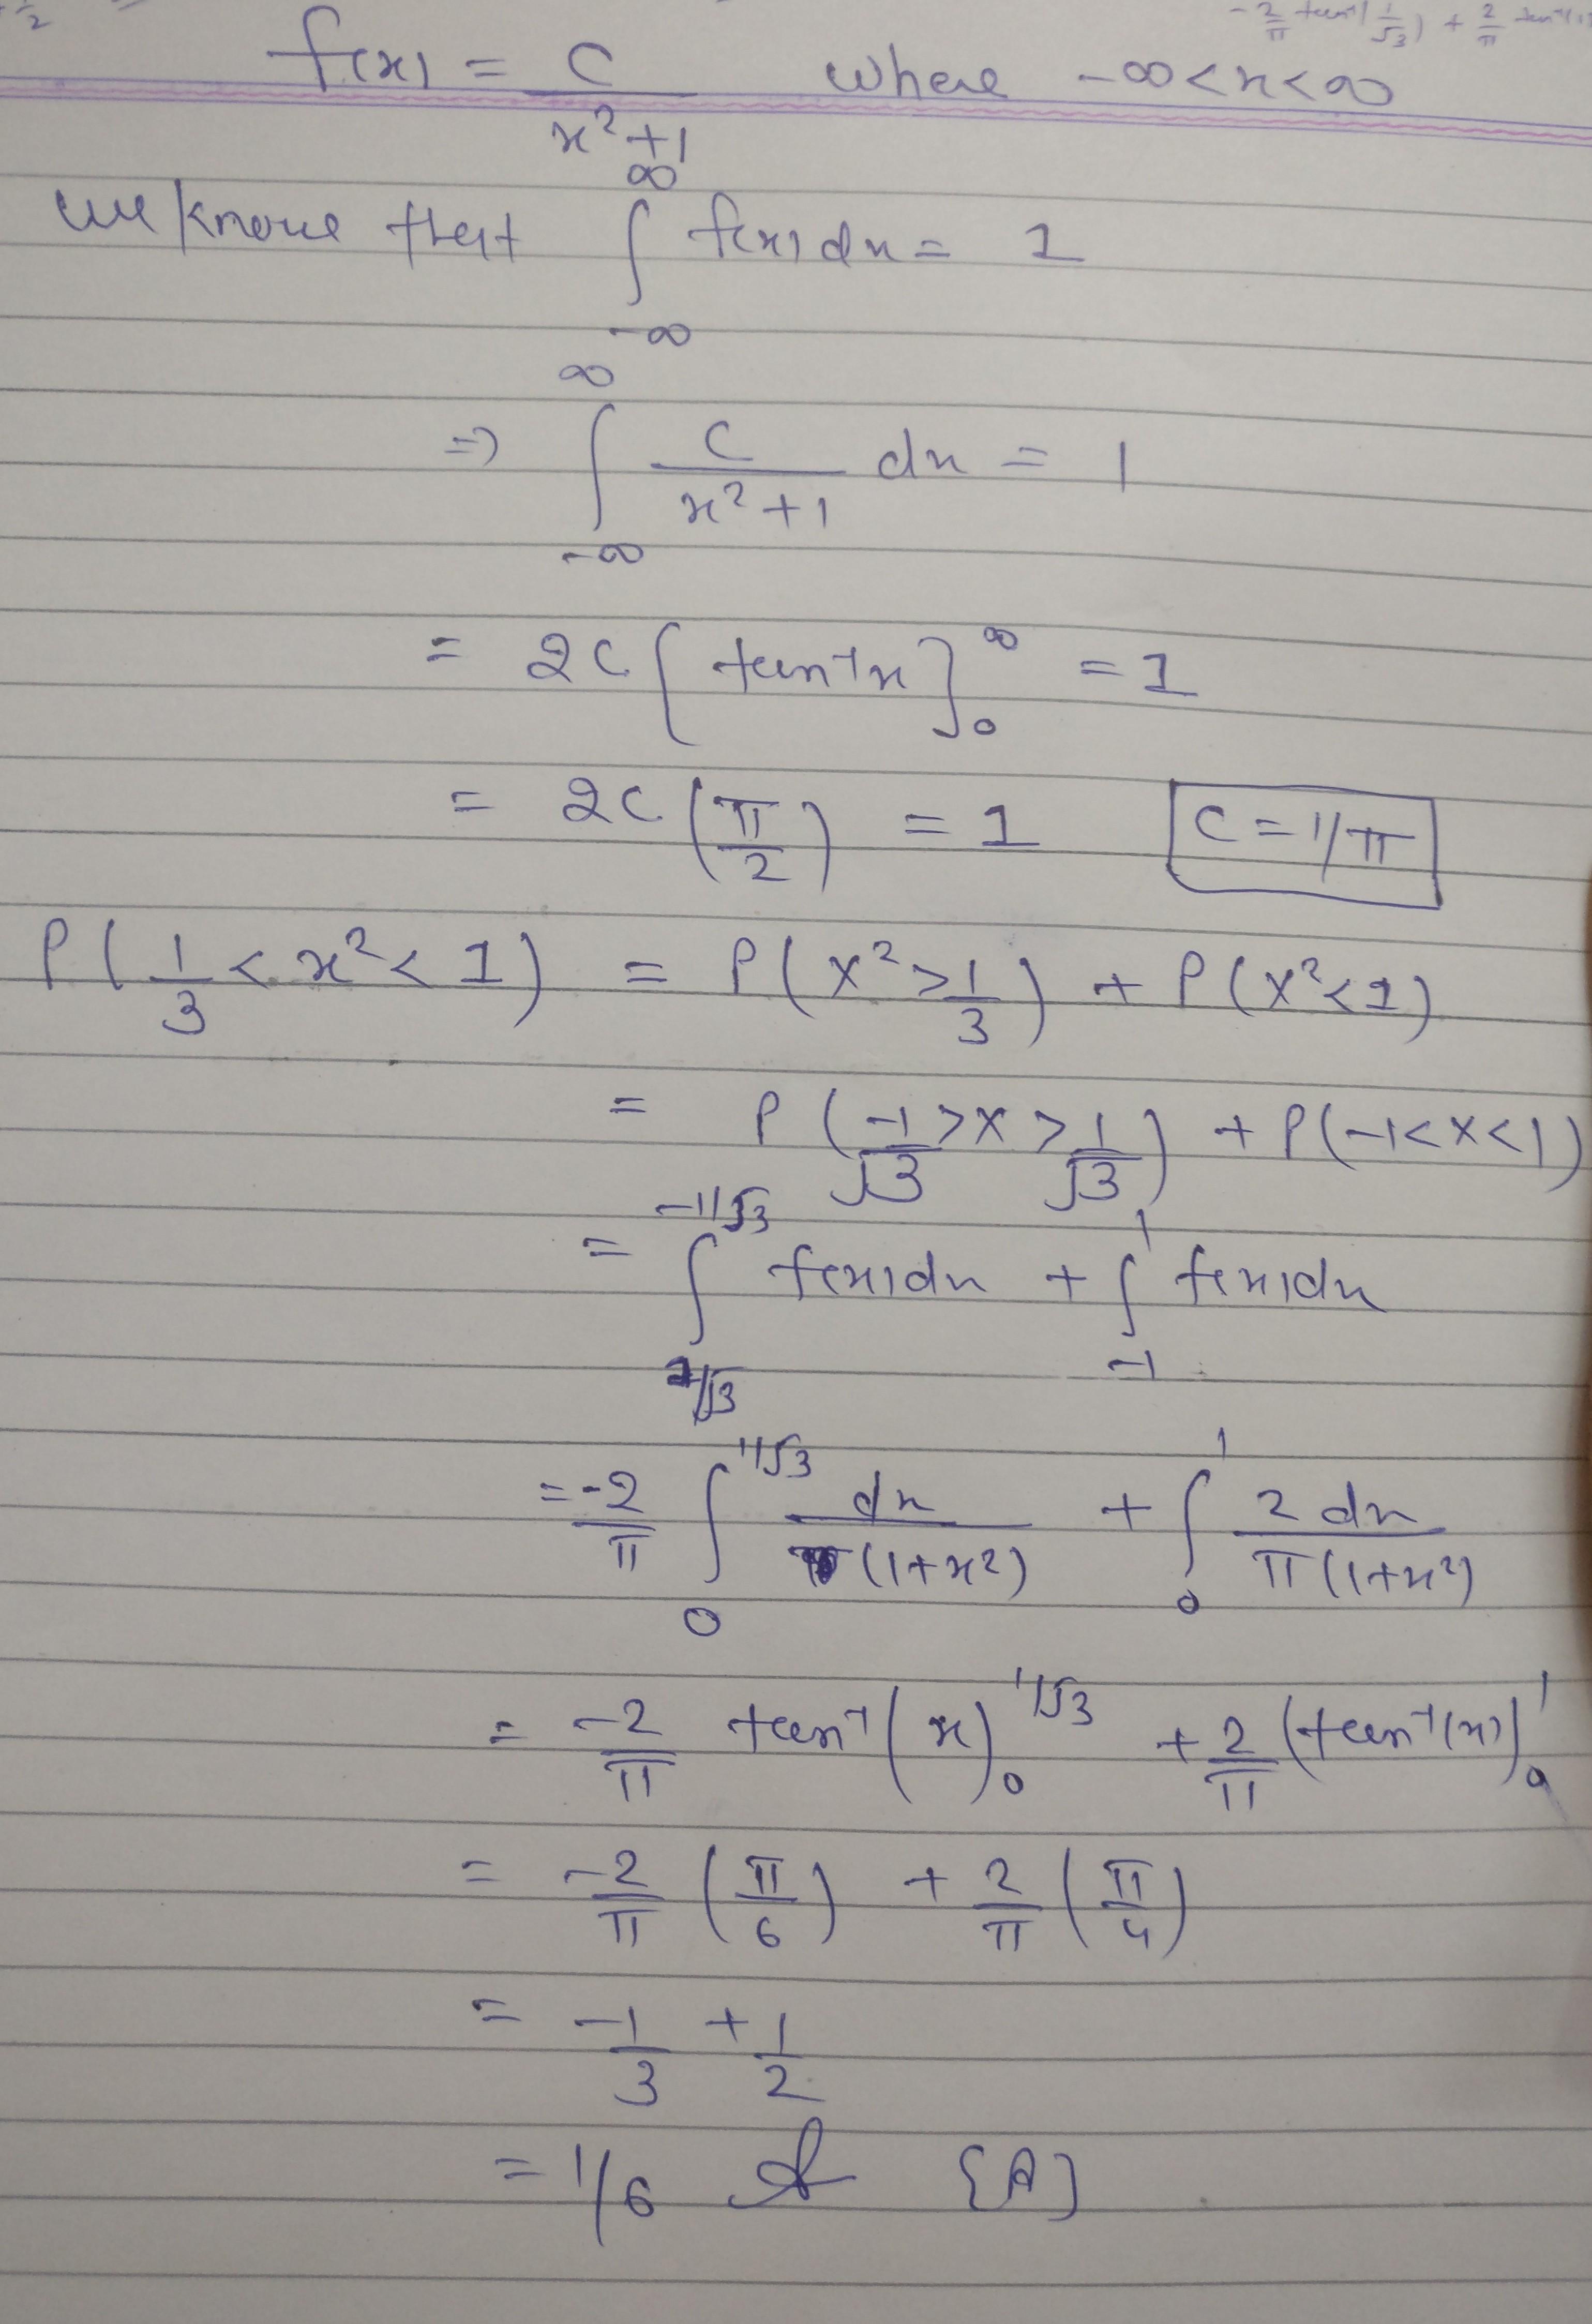 -2/π tan⁻¹(1/√3) + 2/π
f(x) = C/(x²+1) where -∞<x<∞
we know that ∫_{-∞}^{∞} f(x) dx = 1
=> ∫_{-∞}^{∞} C/(x²+1) dx = 1
= 2C [tan⁻¹x]_0^∞ = 1
= 2C (π/2) = 1 C = 1/π
P(1/3 < x² < 1) = P(X² > 1/3) + P(X² < 1)
= P(-1/√3 > X > 1/√3) + P(-1 < X < 1)
= ∫_{1/√3}^{-1/√3} f(x) dx + ∫_{-1}^{1} f(x) dx
= -2/π ∫_0^{1/√3} dx/(1+x²) + ∫_0^1 2 dx/(π(1+x²))
= -2/π tan⁻¹(x)_0^{1/√3} + 2/π (tan⁻¹(x))_0^1
= -2/π (π/6) + 2/π (π/4)
= -1/3 + 1/2
= 1/6 [A]